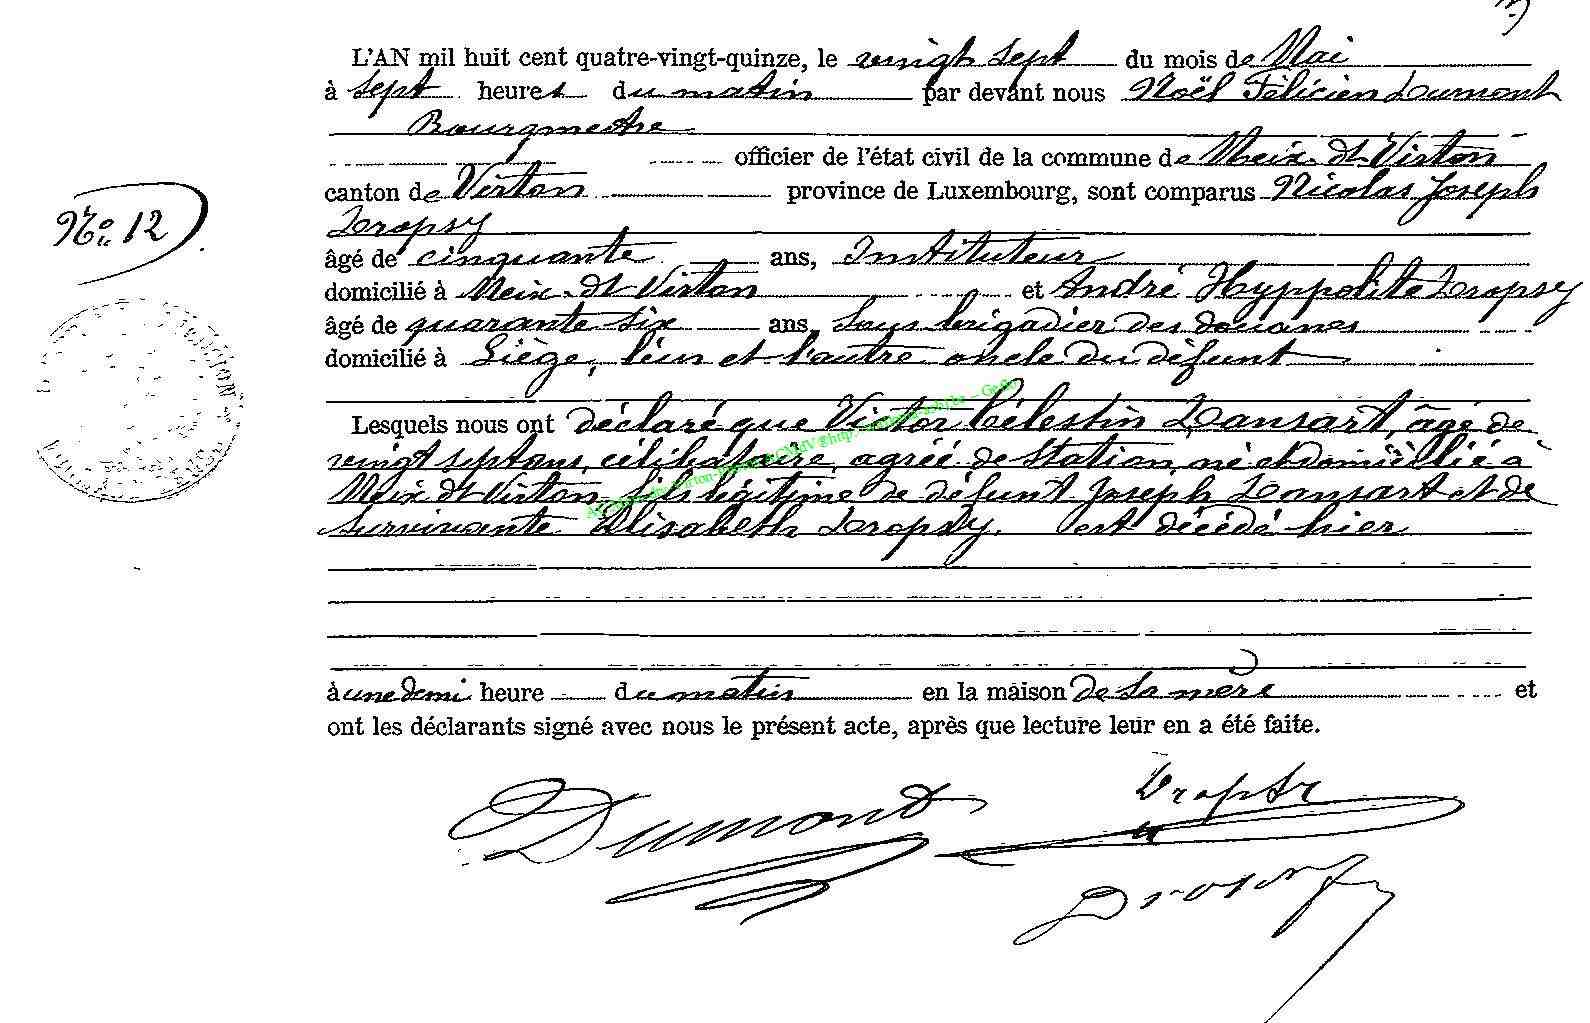 L'AN mil huit cent quatre-vingt-quinze, le vingt sept du mois de Mai
à sept heures du matin par devant nous Noël Félicien Dumont
Bourgmestre
officier de l'état civil de la commune de Meix-dt-Virton
canton de Virton province de Luxembourg, sont comparus Nicolas Joseph
Dropsy
No. 12
âgé de cinquante ans, Instituteur
domicilié à Meix-dt Virton et André Hyppolite Dropsy
âgé de quarante six ans, Sous brigadier des douanes
domicilié à Liège, l'un et l'autre oncle du défunt
Lesquels nous ont déclaré que Victor Célestin Dansart, âgé de
vingt sept ans, célibataire, agréé de Station, né et domicilié à
Meix dt Virton, fils légitime de défunt Joseph Dansart et de
survivante Elisabeth Dropsy. est décédé hier
à une demi heure du matin en la maison de sa mère et
ont les déclarants signé avec nous le présent acte, après que lecture leur en a été faite.
Dumont Dropsy
Dropsy